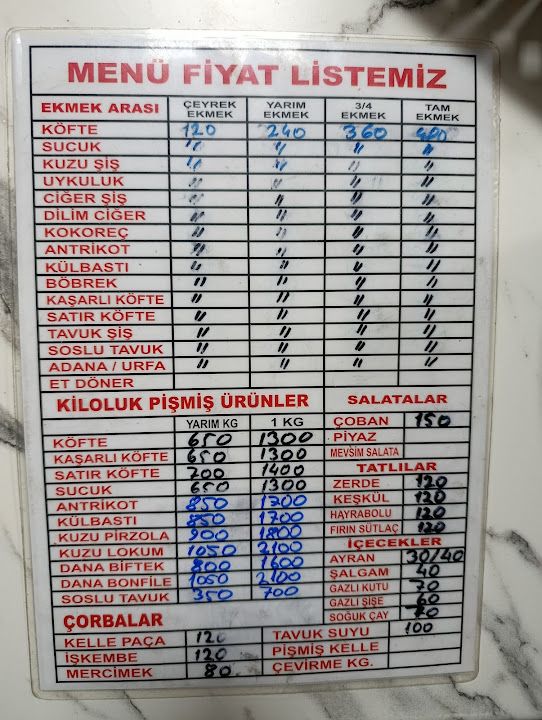 MENÜ FİYAT LİSTEMİZ
EKMEK ARASI ÇEYREK EKMEK YARIM EKMEK 3/4 EKMEK TAM EKMEK
KÖFTE 120 240 360 480
SUCUK " " " "
KUZU ŞİŞ " " " "
UYKULUK " " " "
CİĞER ŞİŞ " " " "
DİLİM CİĞER " " " "
KOKOREÇ " " " "
ANTRİKOT " " " "
KÜLBASTI " " " "
BÖBREK " " " "
KAŞARLI KÖFTE " " " "
SATIR KÖFTE " " " "
TAVUK ŞİŞ " " " "
SOSLU TAVUK " " " "
ADANA / URFA " " " "
ET DÖNER
KİLOLUK PİŞMİŞ ÜRÜNLER
YARIM KG 1 KG
KÖFTE 650 1300
KAŞARLI KÖFTE 650 1300
SATIR KÖFTE 700 1400
SUCUK 650 1300
ANTRİKOT 850 1700
KÜLBASTI 850 1700
KUZU PİRZOLA 900 1800
KUZU LOKUM 1050 2100
DANA BİFTEK 800 1600
DANA BONFİLE 1050 2100
SOSLU TAVUK 350 700
SALATALAR
ÇOBAN 150
PİYAZ
MEVSİM SALATA
TATLILAR
ZERDE 120
KEŞKÜL 120
HAYRABOLU 120
FIRIN SÜTLAÇ 120
İÇECEKLER
AYRAN 30/40
ŞALGAM 40
GAZLI KUTU 70
GAZLI ŞİŞE 60
SOĞUK ÇAY
ÇORBALAR
KELLE PAÇA 120
İŞKEMBE 120
MERCİMEK 80
TAVUK SUYU 100
PİŞMİŞ KELLE
ÇEVİRME KG.